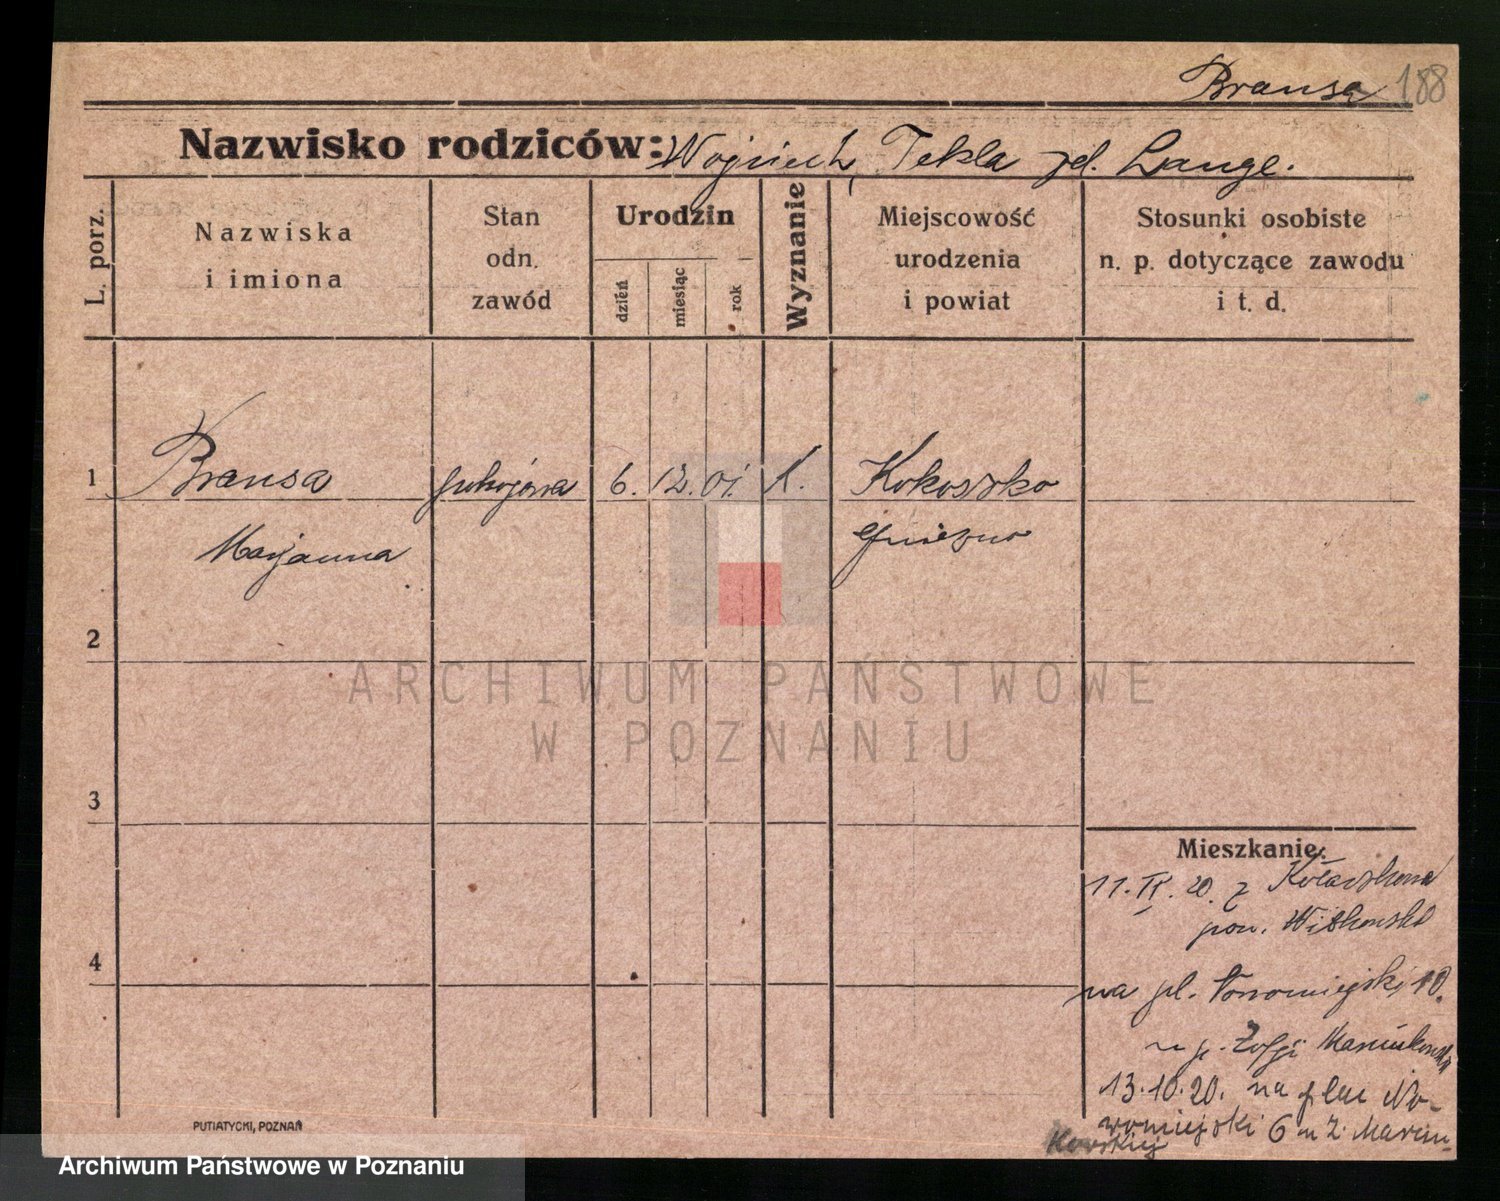 Bransa 188
Nazwisko rodziców: Wojciech, Tekla zd. Lange.
L. porz.
Nazwiska
i imiona
Stan
odn.
zawód
Urodzin
dzień
miesiąc
rok
Wyznanie
Miejscowość
urodzenia
i powiat
Stosunki osobiste
n. p. dotyczące zawodu
i t. d.
1 Bransa pokojowa 6. 12. 01. k. Kokoszko
Marjanna Gniezno
2
ARCHIWUM PAŃSTWOWE
W POZNANIU
3
Mieszkanie:
11. IX. 20. z
pow. Witkowski
4
na pl. Nowomiejski 10.
u p. Zofji
13.10.20. na plac No-
womiejski 6 u Z. Marcin-
kowskiej
PUTIATYCKI, POZNAŃ
Archiwum Państwowe w Poznaniu